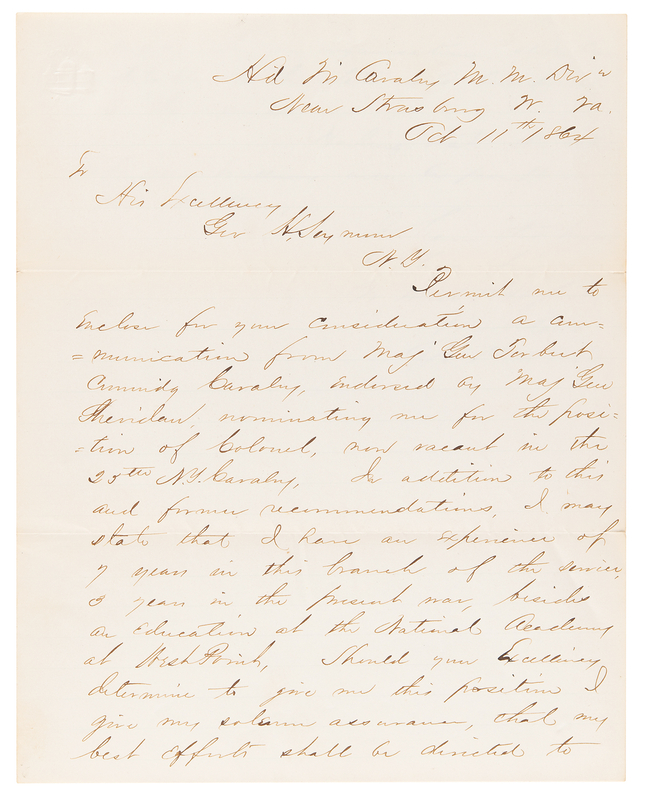 Hd Qrs Cavalry M. M. Divn
Near Strasburg W. Va.
Oct 11th 1864
To
His Excellency
Gov H. Seymour
N. Y.
Permit me to
enclose for your consideration a com=
=munication from Maj Gen Torbert
Commdg Cavalry, endorsed by Maj Gen
Sheridan, nominating me for the posi=
=tion of Colonel, now vacant in the
25th N.Y. Cavalry, In addition to this
and former recommendations, I may
state that I have an experience of
7 years in this branch of the service,
3 years in the present war, besides
an education at the National Academy
at West Point, Should your Excellency
determine to give me this position I
give my solemn assurance, that my
best efforts shall be directed to